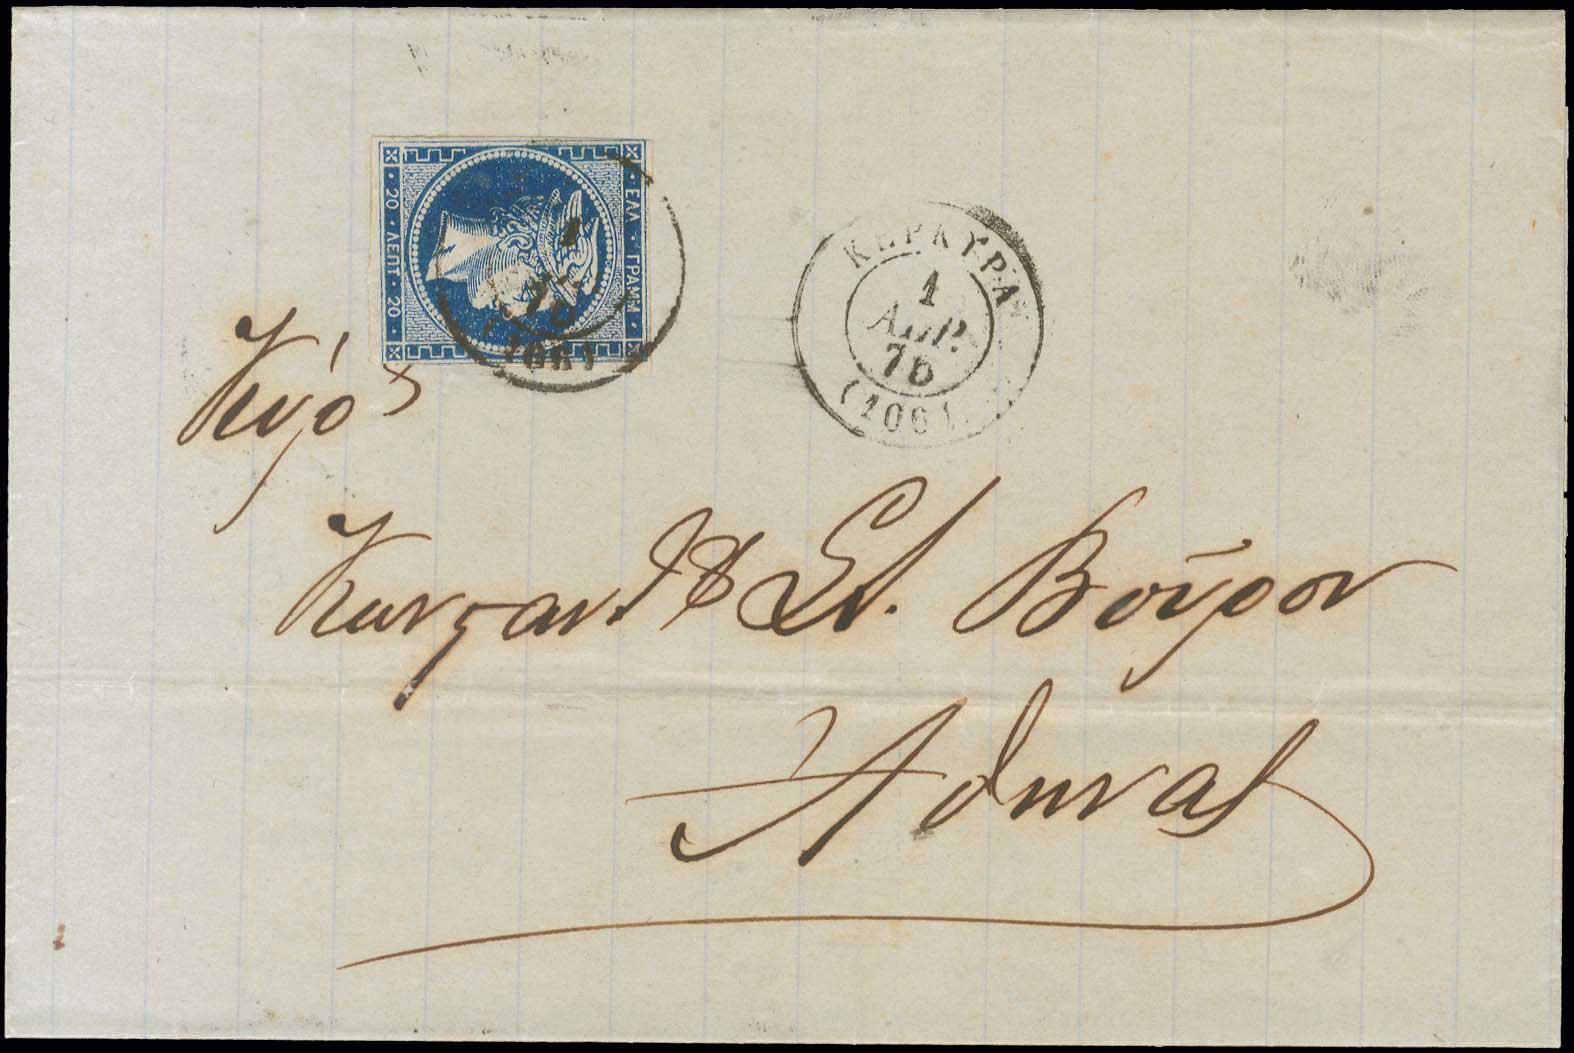 ΕΛΛ · ΓΡΑΜΜ
20 · ΛΕΠΤ · 20
1
(106)
ΚΕΡΚΥΡΑ
1
ΑΠΡ.
76
(106)
Κύρον
Κωνσταντ. Στ. Βούρον
Αθήνας